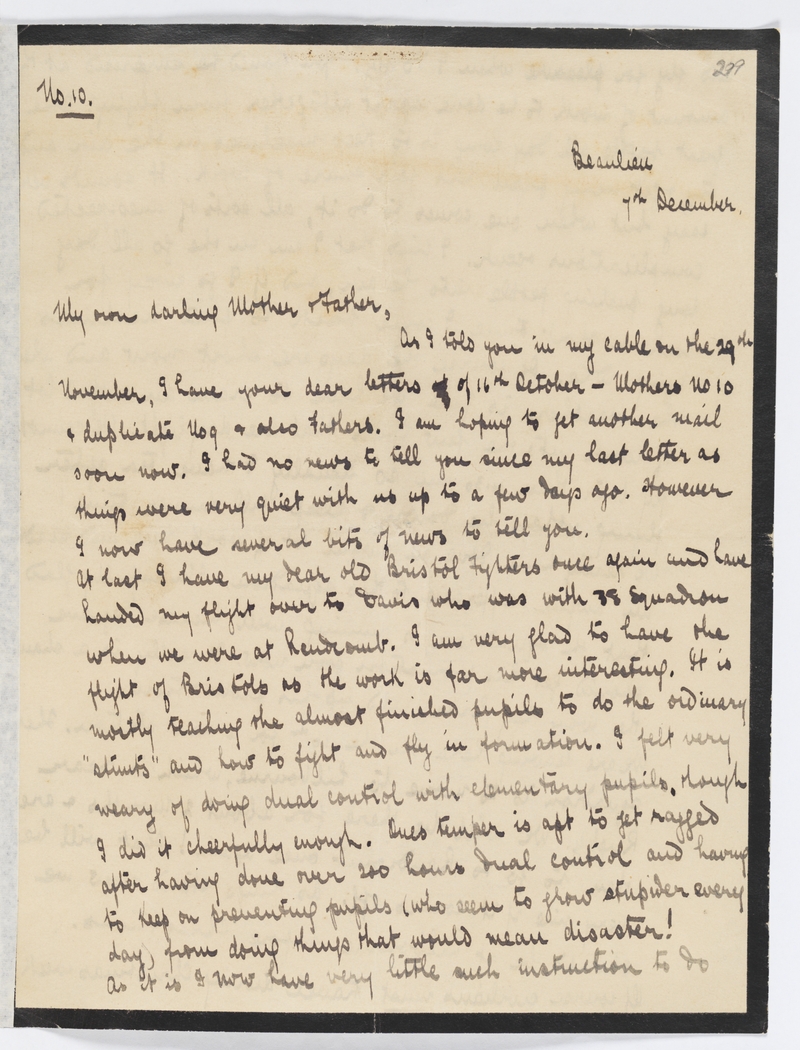 279
No. 10.
Beaulieu
7th December.
My own darling Mother & Father,
As I told you in my cable on the 29th
November, I have your dear letters of 16th October – Mothers No 10
& duplicate No 9 & also Fathers. I am hoping to get another mail
soon now. I had no news to tell you since my last letter as
things were very quiet with us up to a few days ago. However
I now have several bits of news to tell you.
At last I have my dear old Bristol Fighters once again and have
handed my flight over to Davis who was with 38 Squadron
when we were at Rendcomb. I am very glad to have the
flight of Bristols as the work is far more interesting. It is
mostly teaching the almost finished pupils to do the ordinary
"stunts" and how to fight and fly in formation. I felt very
weary of doing dual control with elementary pupils, though
I did it cheerfully enough. Ones temper is apt to get ragged
after having done over 200 hours dual control and having
to keep on preventing pupils (who seem to grow stupider every
day) from doing things that would mean disaster!
As it is I now have very little such instruction to do